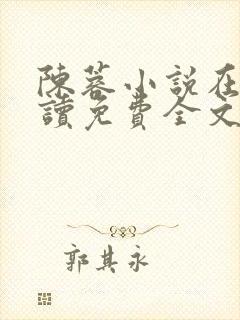 陳蓉小說在
讀免費全文
郭其永